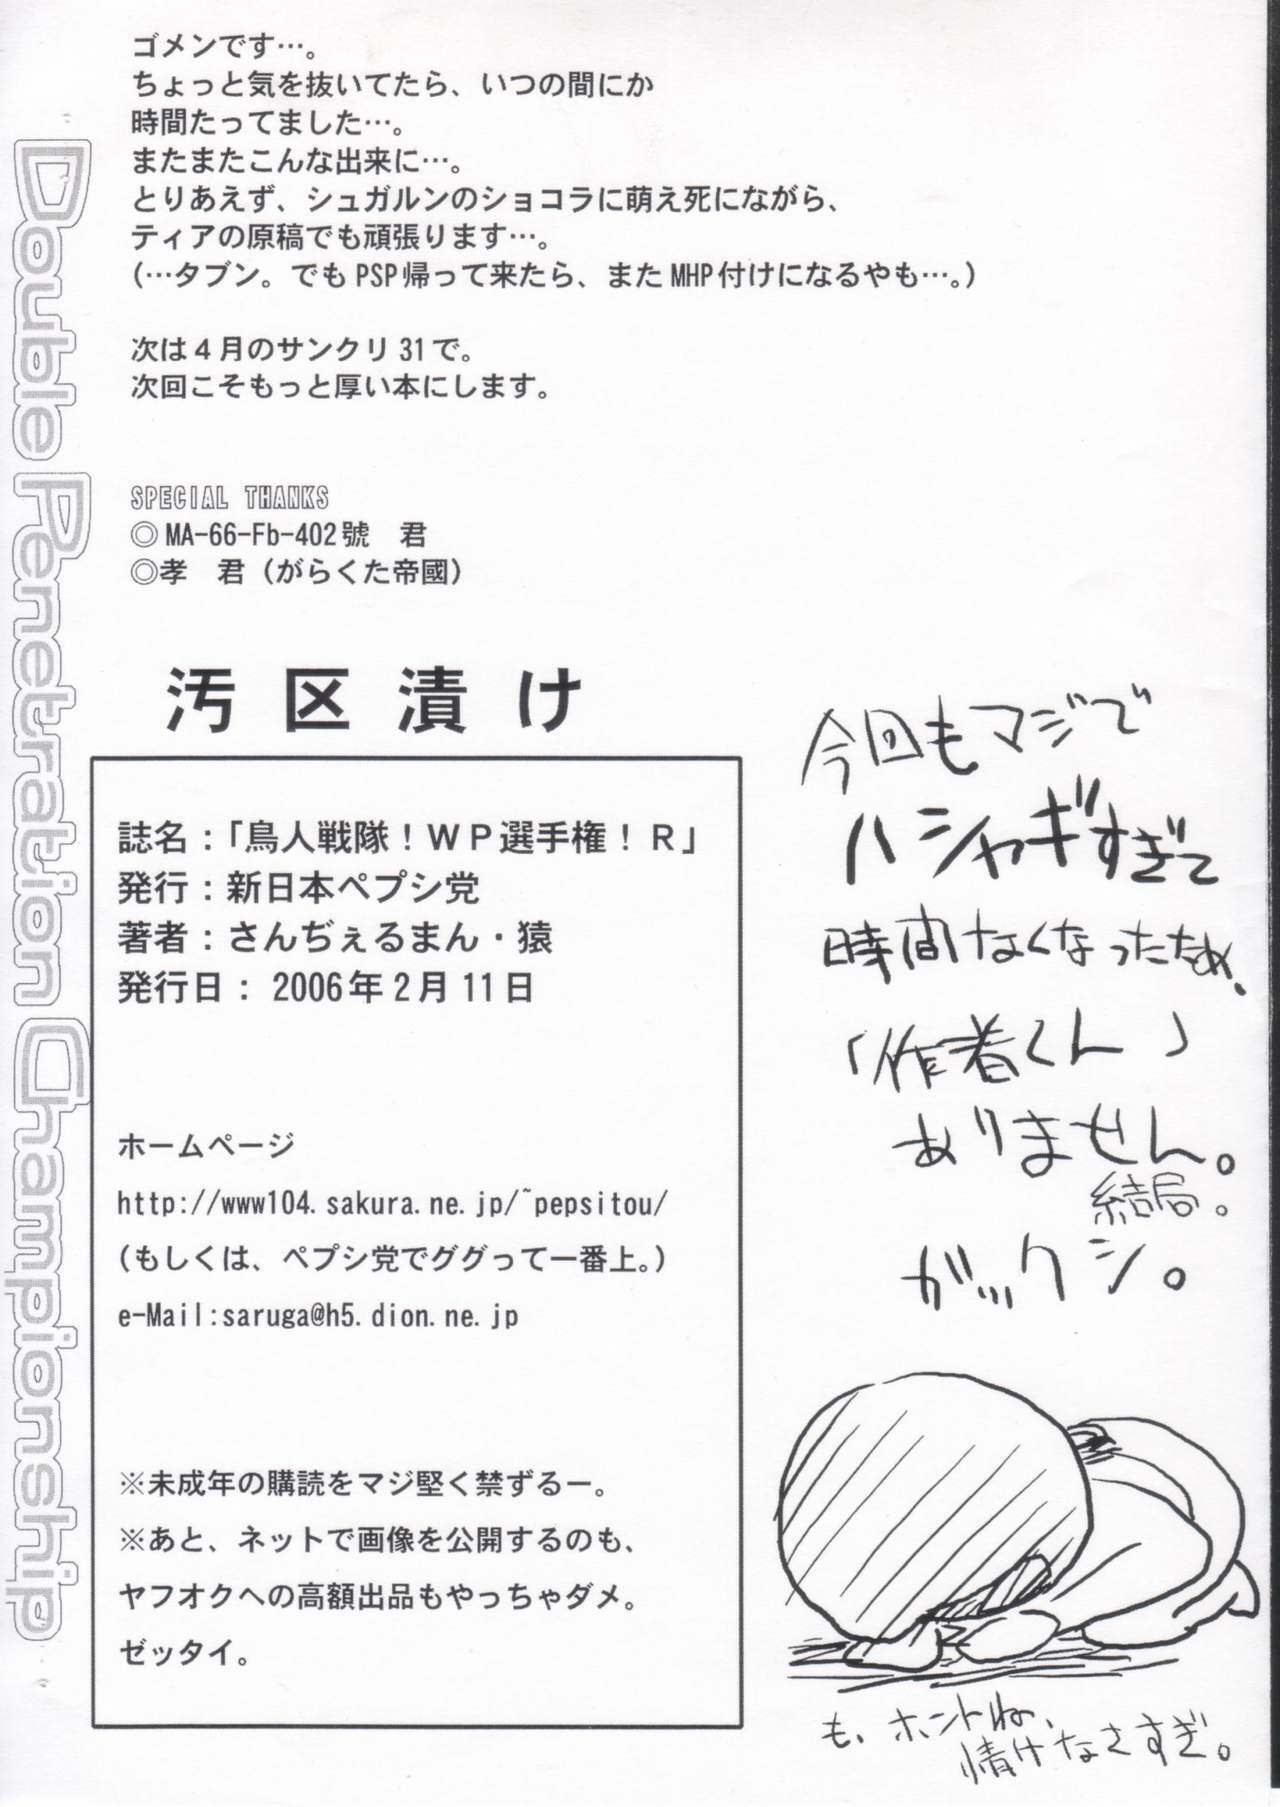 ゴメンです…。
ちょっと気を抜いてたら、いつの間にか
時間たってました…。
またまたこんな出来に…。
とりあえず、シュガルンのショコラに萌え死にながら、
ティアの原稿でも頑張ります…。
(…タブン。でもPSP帰って来たら、またMHP付けになるやも…。)
次は4月のサンクリ31で。
次回こそもっと厚い本にします。
SPECIAL THANKS
◎MA-66-Fb-402號 君
◎孝 君(がらくた帝國)
汚区漬け
誌名:「鳥人戦隊!WP選手権!R」
発行:新日本ペプシ党
著者:さんぢぇるまん・猿
発行日: 2006年2月11日
ホームページ
http://www104.sakura.ne.jp/~pepsitou/
(もしくは、ペプシ党でググって一番上。)
e-Mail:saruga@h5.dion.ne.jp
※未成年の購読をマジ堅く禁ずるー。
※あと、ネットで画像を公開するのも、
ヤフオクへの高額出品もやっちゃダメ。
ゼッタイ。
今回もマジで
ハシャギすぎて
時間なくなったため、
「作者くん」
ありません。
結局。
ガックシ。
も、ホントね、
情けなさすぎ。
Double Penetration Championship